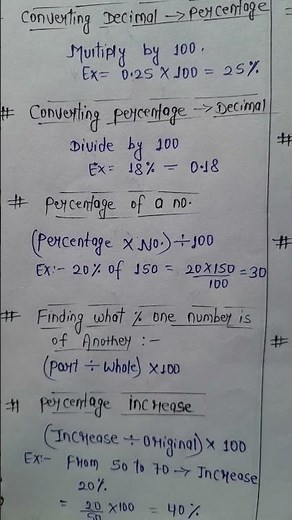 Converting Decimal → Percentage
Multiply by 100.
Ex= 0.25 × 100 = 25%
# Converting percentage → Decimal
Divide by 100
Ex= 18% = 0.18
# percentage of a no.
(Percentage × No.) ÷ 100
Ex:- 20% of 150 = 20×150/100 = 30
# Finding what % one number is
of Another :-
(part ÷ whole) × 100
# percentage increase
(Increase ÷ Original) × 100
Ex:- From 50 to 70 → Increase
20%.
= 20/50 ×100 = 40%